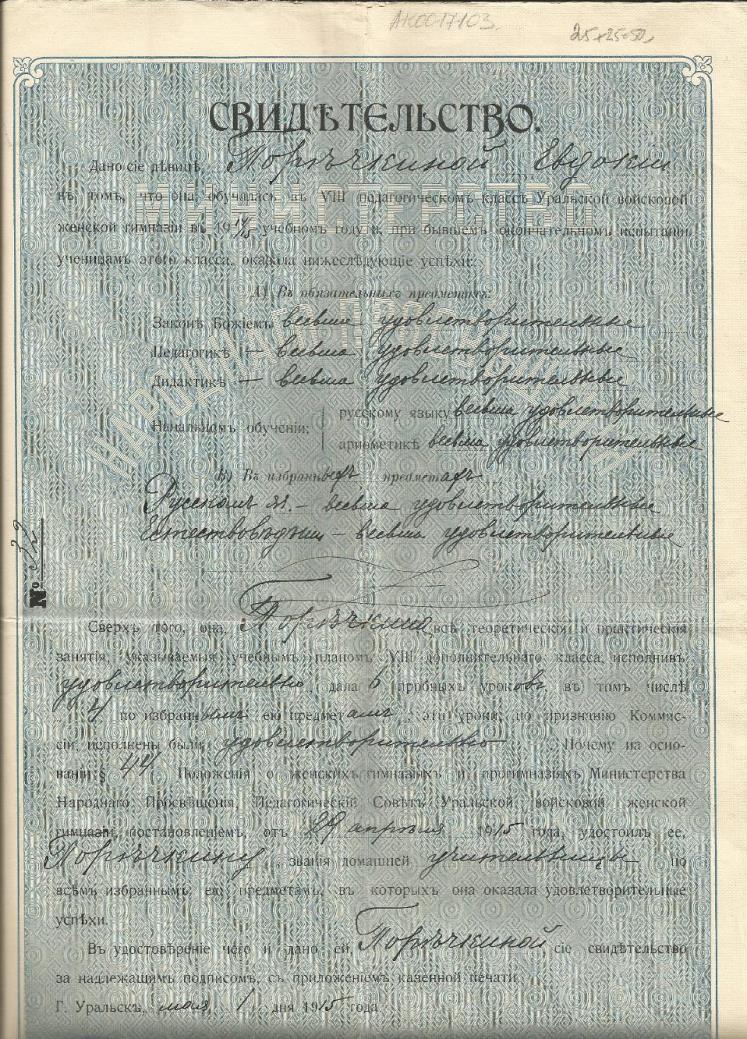 АК00-17-103
25+25=50
СВИДѢТЕЛЬСТВО.
МИНИСТЕРСТВО
НАРОДНАГО ПРОСВѢЩЕНІЯ
Дано сіе дѣвицѣ, Горѣчкиной Евдокіи
въ томъ, что она, обучалась въ VIII педагогическомъ классѣ Уральской войсковой
женской гимназіи въ 1914/15 учебномъ году и, при бывшемъ окончательномъ испытаніи
ученицамъ этого класса, оказала нижеслѣдующіе успѣхи:
А) Въ обязательныхъ предметахъ:
Законѣ Божіемъ весьма удовлетворительные
Педагогикѣ — весьма удовлетворительные
Дидактикѣ — весьма удовлетворительные
Начальномъ обученіи:
русскому языку весьма удовлетворительные
ариѳметикѣ весьма удовлетворительные
Б) Въ избранныхъ предметахъ
Русскомъ яз. — весьма удовлетворительные
Естествовѣдѣніи — весьма удовлетворительные
№
Сверхъ того, она, Горѣчкина, всѣ теоретическія и практическія
занятія, указываемыя учебнымъ планомъ VIII дополнительнаго класса, исполнивъ
удовлетворительно, дала 6 пробныхъ уроковъ, въ томъ числѣ
4 по избраннымъ ею предметамъ, эти уроки, по признанію Коммис-
сіи, исполнены были удовлетворительно. Почему на осно-
ваніи § 44 Положенія о женскихъ гимназіяхъ и прогимназіяхъ Министерства
Народнаго Просвѣщенія, Педагогическій Совѣтъ Уральской войсковой женской
гимназіи, постановленіемъ, отъ 29 апрѣля 1915 года, удостоилъ ее,
Горѣчкину, званія домашней учительницы по
всѣмъ избраннымъ ею предметамъ, въ которыхъ она оказала удовлетворительные
успѣхи.
Въ удостовѣреніе чего и дано ей, Горѣчкиной сіе свидѣтельство
за надлежащимъ подписомъ, съ приложеніемъ казенной печати.
Г. Уральскъ, мая, 1 дня 1915 года